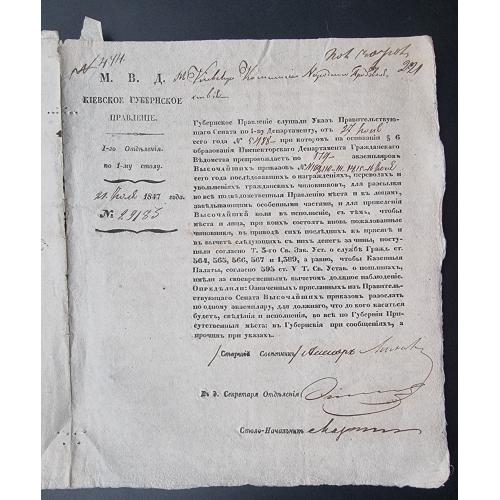 № 474
М. В. Д.
КІЕВСКОЕ ГУБЕРНСКОЕ
ПРАВЛЕНІЕ.
1-го Отдѣленія.
по 1-му столу.
21 Іюля 1847 года.
№ 29185
Въ Кіевскую
221
Губернское Правленіе слушали Указъ Правительствую-
щаго Сената по 1-му Департаменту, отъ 27 Іюня
сего года № при которомъ на основаніи § 6
образованія Инспекторскаго Департамента Гражданскаго
Вѣдомства препровождаетъ по экземпляровъ
Высочайшихъ приказовъ №
сего года послѣдовавшихъ о награжденіяхъ, переводахъ и
увольненіяхъ гражданскихъ чиновниковъ, для разсылки
во всѣ подвѣдомственныя Правленію мѣста и къ лицамъ,
завѣдывающимъ особенными частями, и для приведенія
Высочайшей воли въ исполненіе, съ тѣмъ, чтобы
мѣста и лица, при коихъ состоятъ вновь пожалованные
чиновники, въ приводѣ сихъ послѣднихъ къ присягѣ и
въ вычетѣ слѣдующихъ съ нихъ денегъ за чины, посту-
пили согласно Т. 3-го Св. Зак. Уст. о службѣ Гражд. ст.
564, 565, 566, 567 и 1,389, а равно, чтобы Казенныя
Палаты, согласно 595 ст. V Т. Св. Устав. о пошлинахъ,
имѣли за своевременнымъ вычетомъ должное наблюденіе.
Опредѣлили: Означенныхъ присланныхъ изъ Пра-
вительствующаго Сената Высочайшихъ приказовъ разослать
по одному экземпляру, для должнаго, что до кого касаться
будетъ, свѣденія и исполненія, во всѣ по Губерніи При-
сутственныя мѣста: въ Губернскія при сообщеніяхъ, а
прочимъ при указахъ.
Старшій Совѣтникъ
Въ д. Секретаря Отдѣленія
Столо-Начальникъ